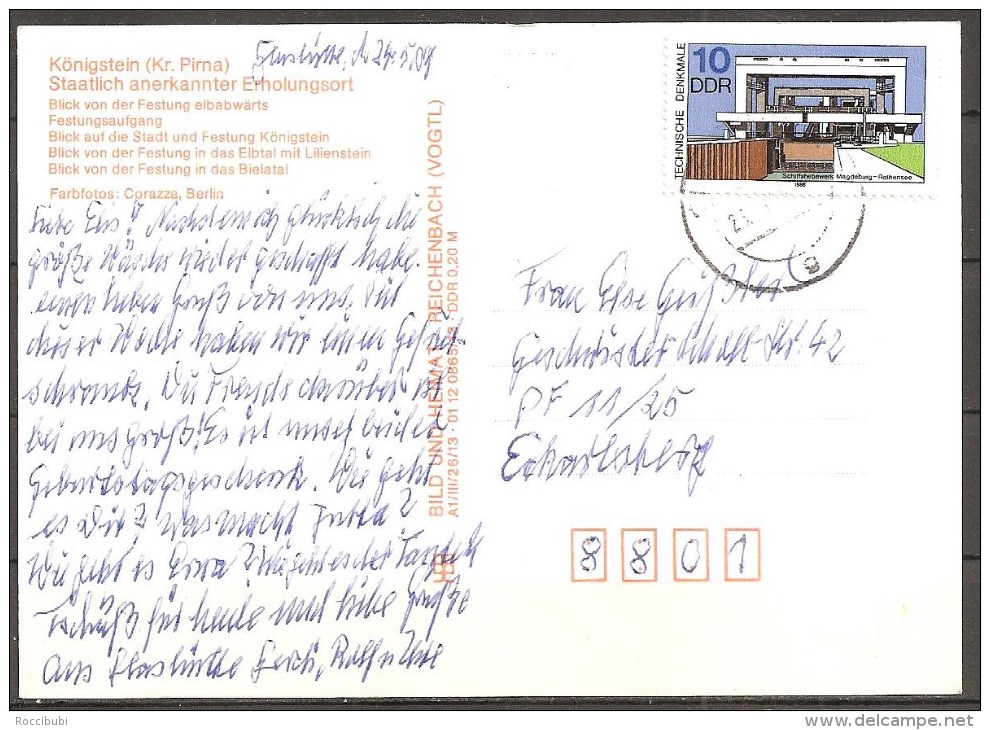 Glashütte, d. 24.5.89
Königstein (Kr. Pirna)
Staatlich anerkannter Erholungsort
Blick von der Festung elbabwärts
Festungsaufgang
Blick auf die Stadt und Festung Königstein
Blick von der Festung in das Elbtal mit Lilienstein
Blick von der Festung in das Bielatal
Farbfotos: Corazza, Berlin
Nachdem ich glücklich die
große Wäsche wieder geschafft habe
einen lieben Gruß von uns.
dieser Woche haben wir einen Gefrier
schrank. Die Freude darüber ist
bei uns groß! Es ist unser
Geburtstagsgeschenk. Wie geht
es Dir? Was macht Jutta?
Wie geht es
Tschüß für heute und liebe Grüße
aus Glashütte Gerdi, Rolf u.
BILD UND HEIMAT REICHENBACH (VOGTL)
A1/III/26/13 · 01 12 0865/13 · DDR 0,20 M
10
DDR
TECHNISCHE DENKMALE
Schiffshebewerk Magdeburg-Rothensee
1988
Frau Else
Geschwister Scholl-Str. 42
PF 11/25
Eckartsberg
8801
Roccibubi
delcampe.net